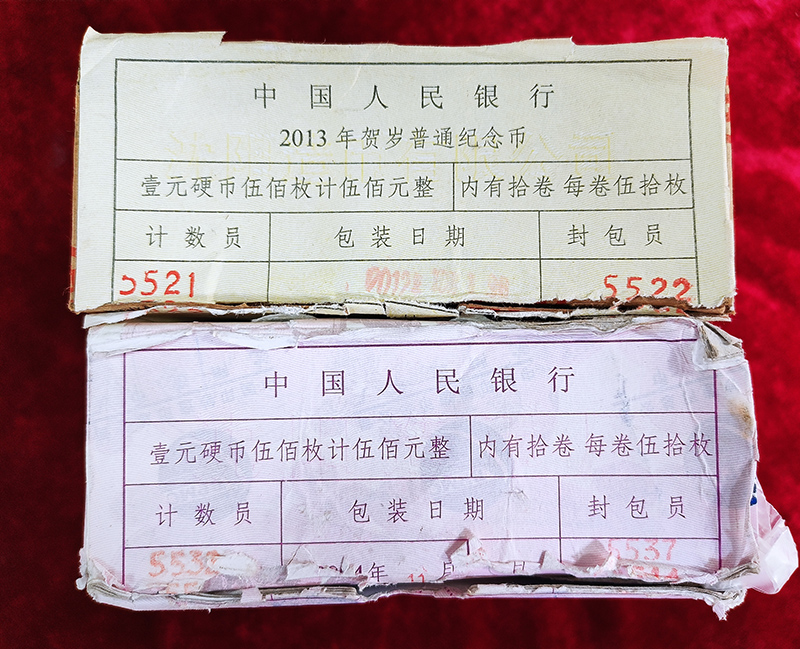 中国人民银行
2013年贺岁普通纪念币
壹元硬币伍佰枚计伍佰元整 内有拾卷 每卷伍拾枚
计数员 包装日期 封包员
5521 5522
中国人民银行
壹元硬币伍佰枚计伍佰元整 内有拾卷 每卷伍拾枚
计数员 包装日期 封包员
5537 年 11 月 5537